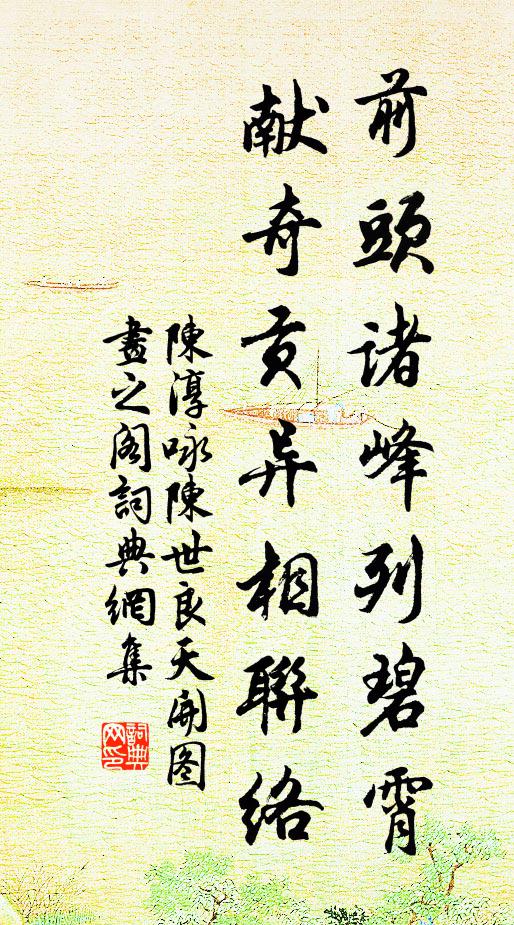 前頭诸峰列碧霄
献奇贡异相聯络
陳淳咏陳世良天開图
畫之阁詞典網集
詞典
网印